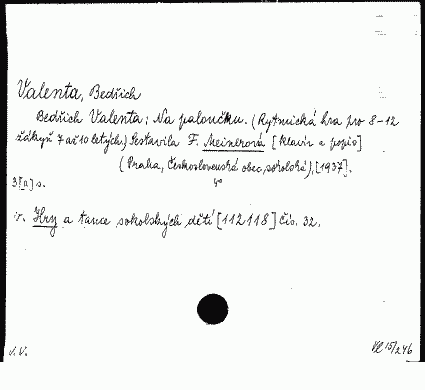 Valenta, Bedřich
Bedřich Valenta: Na paloučku. (Rytmická hra pro 8-12
žákyň 7 až 10 letých.) Sestavila F. Meinerová [klavír a popis]
(Praha, Československá obec sokolská), [1937].
3[a] s. 4°
v. Hry a tance sokolských dětí [112118] čís. 32.
J. V.
15/246